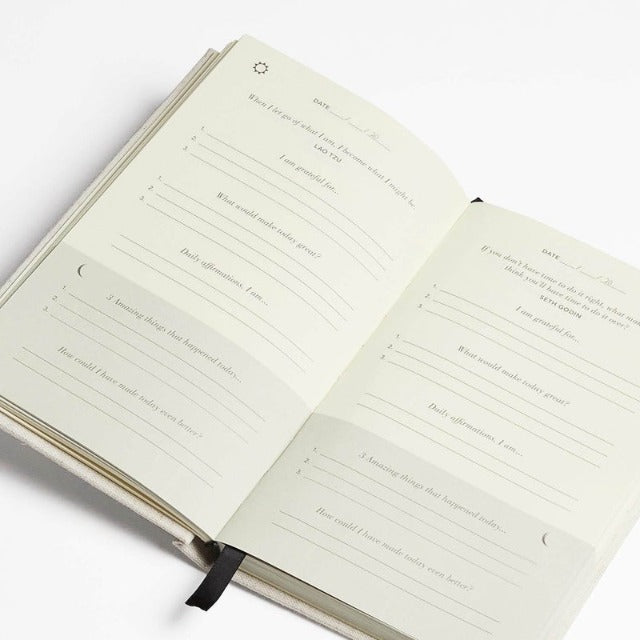 DATE 20
When I let go of what I am, I become what I might be.
LAO TZU
I am grateful for...
1.
2.
3.
What would make today great?
1.
2.
3.
Daily affirmations, I am...
3 Amazing things that happened today...
1.
2.
3.
How could I have made today even better?
DATE 20
If you don't have time to do it right, what mak
think you'll have time to do it over?
SETH GODIN
I am grateful for...
1.
2.
3.
What would make today great?
1.
2.
3.
Daily affirmations, I am...
3 Amazing things that happened today...
1.
2.
3.
How could I have made today even better?